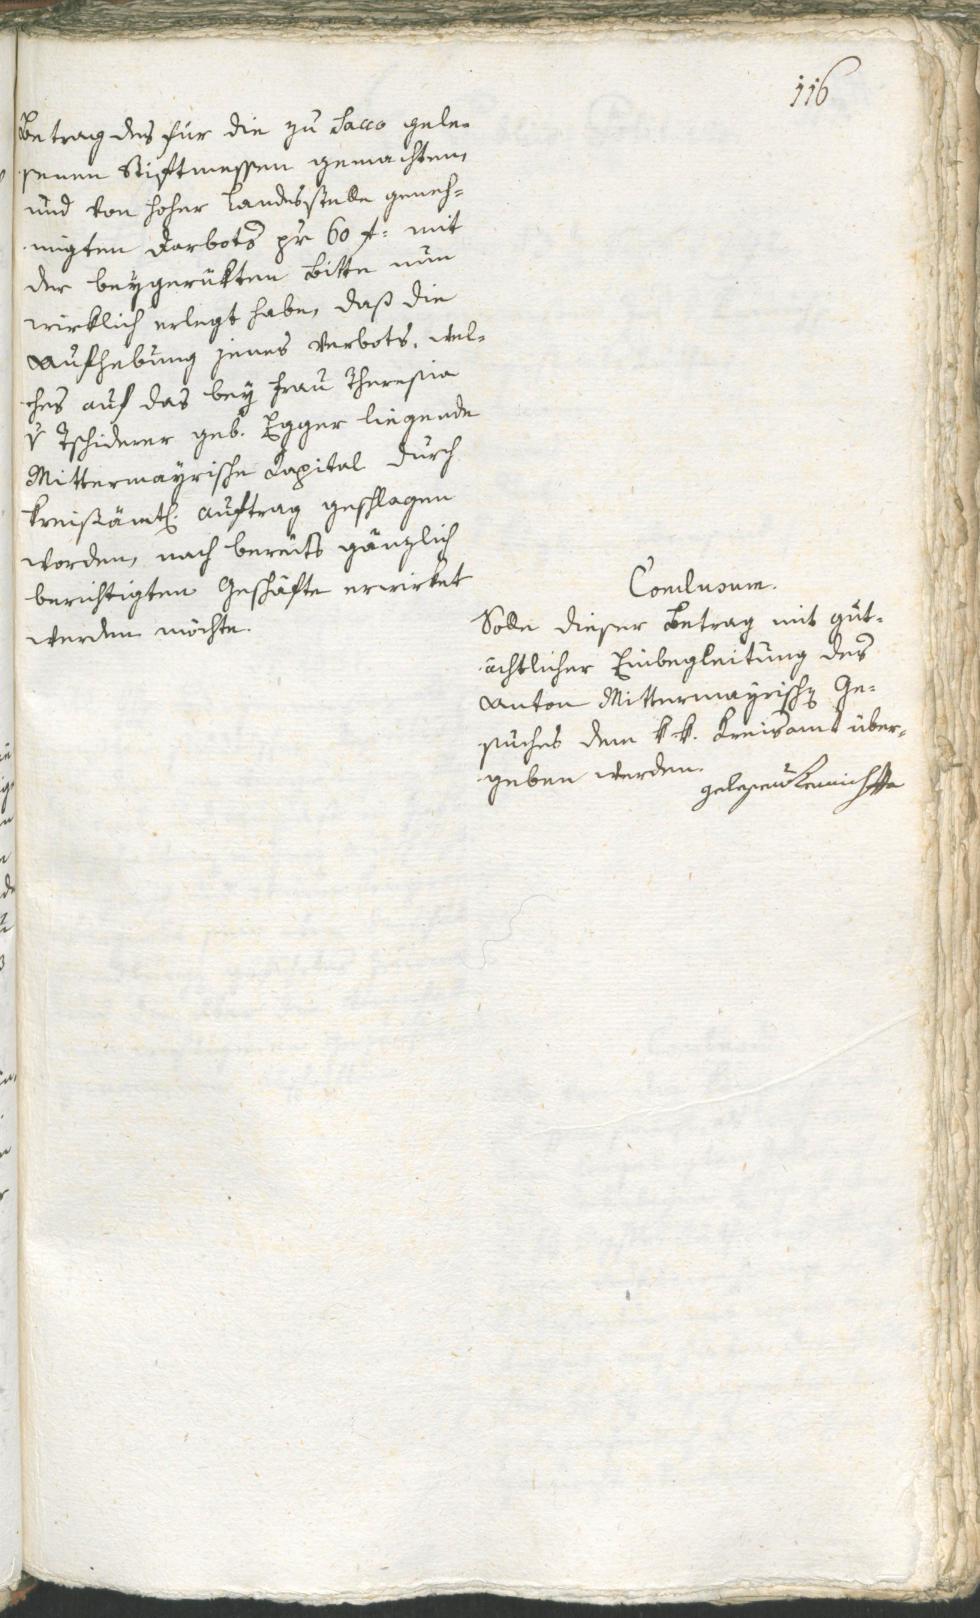 116
Betrag des für die zu Sacco gele-
senen Stiftmessen gemachten,
und von hoher Landesstelle geneh-
migten Darbots pr 60 f: mit
der beygerükten Bitte nun
wirklich erlegt habe, daß die
Aufhebung jenes Verbots, wel-
ches auf das bey Frau Theresia
v Tschiderer geb. Egger liegende
Mittermayrische Capital durch
kreisämtl. Auftrag geschlagen
worden, nach bereits gänzlich
berichtigten Geschäfte erwirket
werden möchte.
Conclusum.
Solle dieser Betrag mit gut-
ächtlicher Einbegleitung des
Anton Mittermayrischen Ge-
suches dem k. k. Kreisamt über-
geben werden.